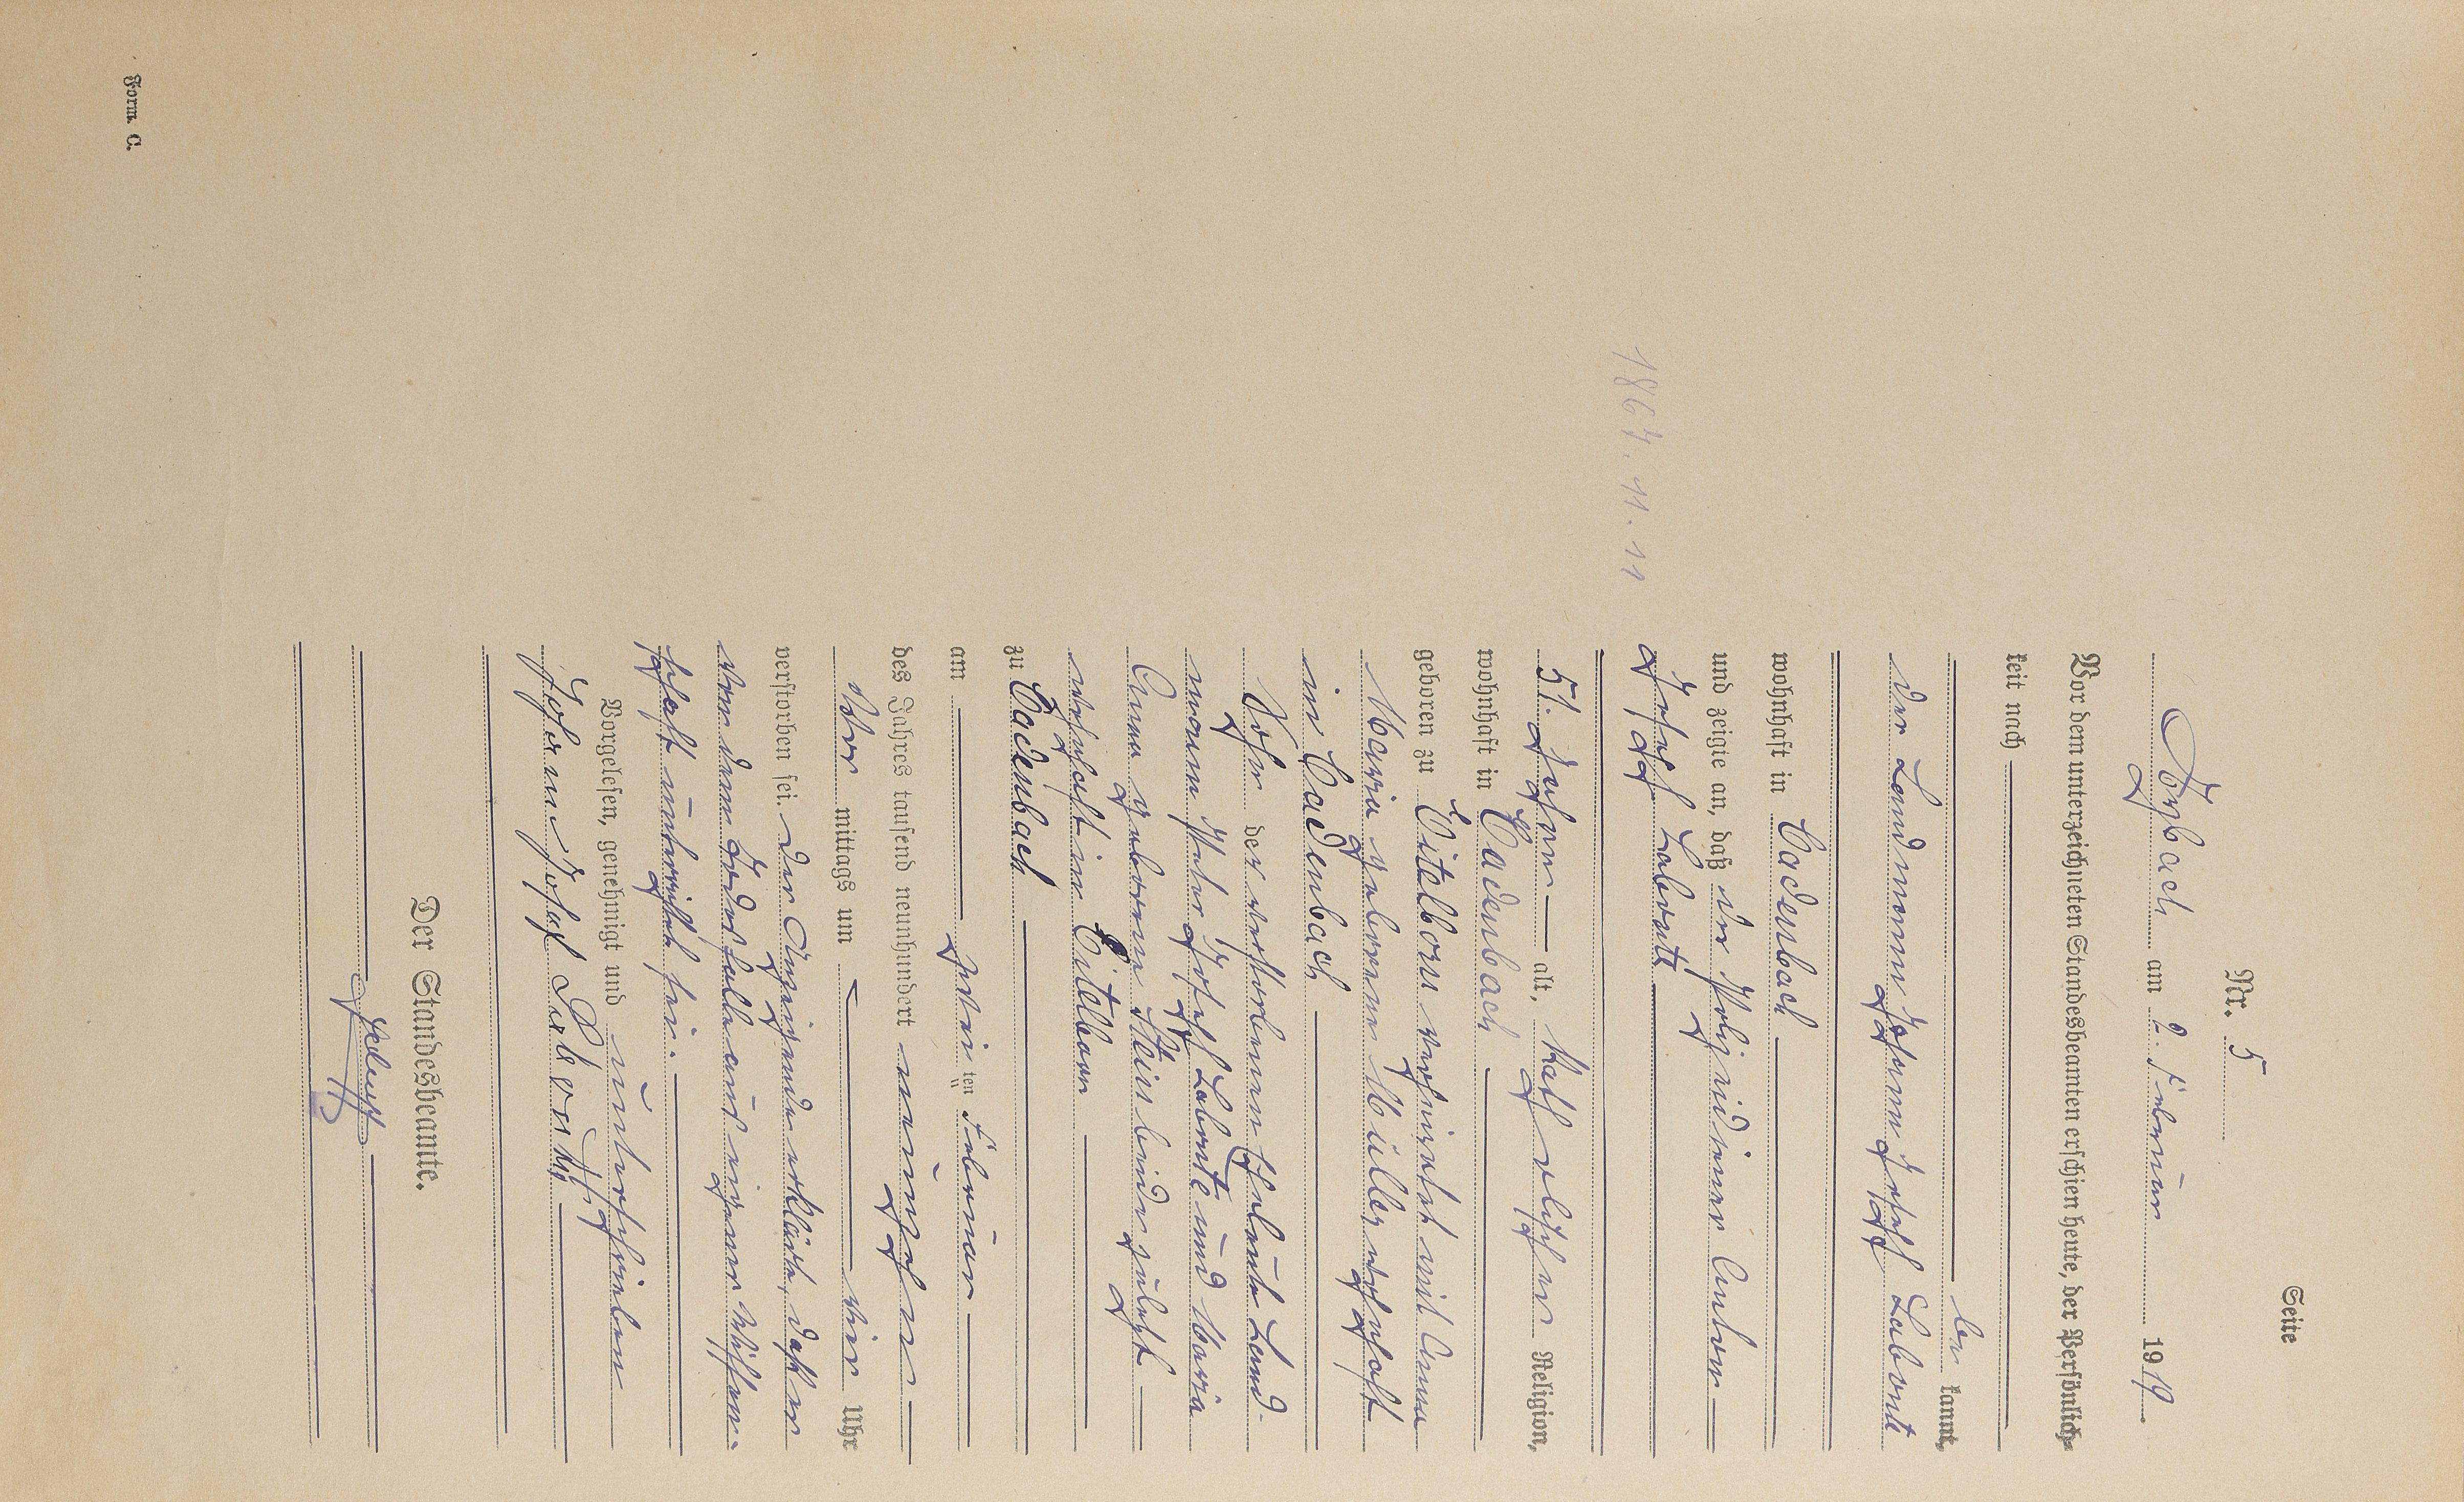 Seite
Nr. 5
Arzbach am 2. Februar 1919.
Vor dem unterzeichneten Standesbeamten erschien heute, der Persönlich-
keit nach
be kannt,
der Landmann Johann Joseph Labonte
wohnhaft in Cadenbach
und zeigte an, daß der Anton
Joseph Labonte
1867. 11. 11
51. Jahre alt, katholischer Religion,
wohnhaft in Cadenbach
geboren zu Eitelborn verheiratet mit Anna
Maria geborene Müller wohnhaft
in Cadenbach
Sohn der verstorbenen Eheleute Land-
mann Peter Joseph Labonte und Maria
Anna geborene zuletzt
wohnhaft in Eitelborn
zu Cadenbach
am zweiten Februar
des Jahres tausend neunhundert neunzehn
Vor mittags um vier Uhr
verstorben sei. Der Anzeigende erklärte, daß er
von dem Todesfalle aus eigener Wissen-
schaft unterrichtet sei.
Vorgelesen, genehmigt und unterschrieben
Johann Josef Labonte
Der Standesbeamte.
Form. C.